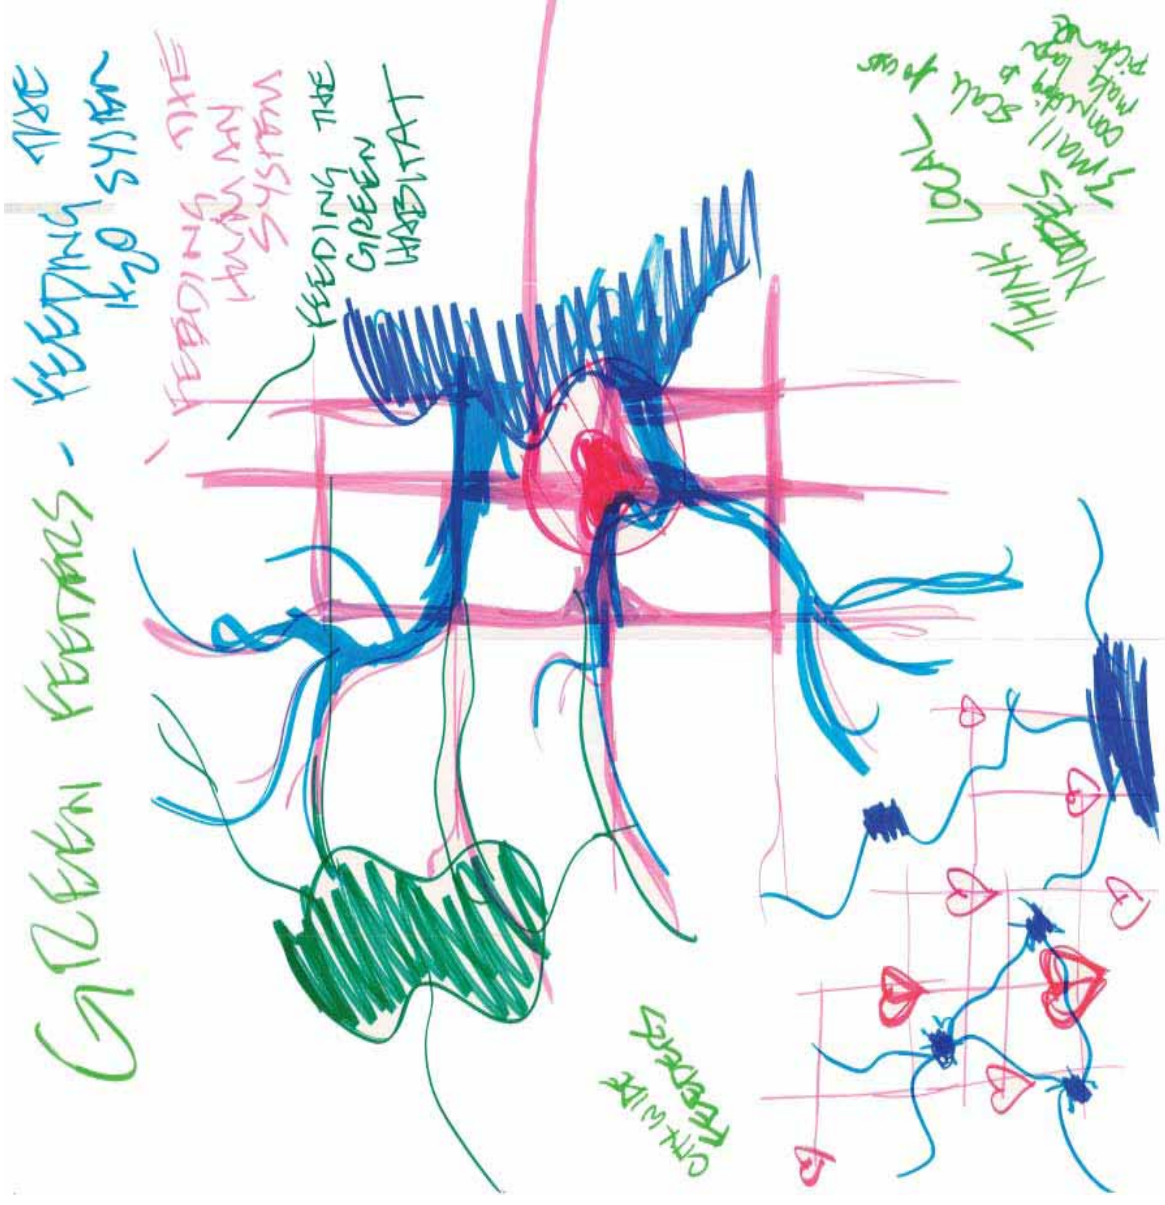 GREEN FEEDERS - FEEDING THE
H2O SYSTEM
FEEDING THE
HUMAN
SYSTEM
FEEDING THE
GREEN
HABITAT
THINK LOCAL
NODES
small scale focus
connecting to
make large
picture
CITY WIDE
FEEDERS